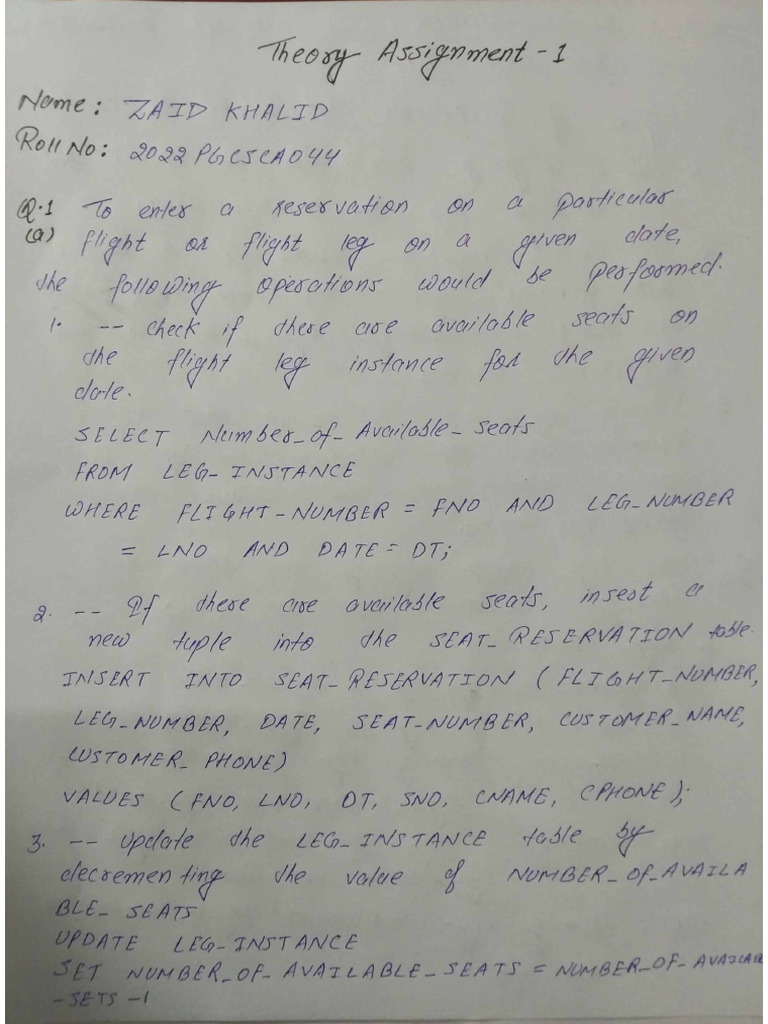 Theory Assignment - 1
Name: ZAID KHALID
Roll No: 2022PGCSCA044
Q.1 To enter a reservation on a particular
(a) flight or flight leg on a given date,
the following operations would be performed.
1. -- check if there are available seats on
the flight leg instance for the given
date.
SELECT Number_of_Available_seats
FROM LEG_INSTANCE
WHERE FLIGHT_NUMBER = FNO AND LEG_NUMBER
= LNO AND DATE = DT;
2. -- If there are available seats, insert a
new tuple into the SEAT_RESERVATION table.
INSERT INTO SEAT_RESERVATION (FLIGHT_NUMBER,
LEG_NUMBER, DATE, SEAT_NUMBER, CUSTOMER_NAME,
CUSTOMER_PHONE)
VALUES (FNO, LNO, DT, SNO, CNAME, CPHONE);
3. -- Update the LEG_INSTANCE table by
decrementing the value of NUMBER_OF_AVAILA
BLE_SEATS
UPDATE LEG_INSTANCE
SET NUMBER_OF_AVAILABLE_SEATS = NUMBER_OF_AVAILABLE
-SETS -1